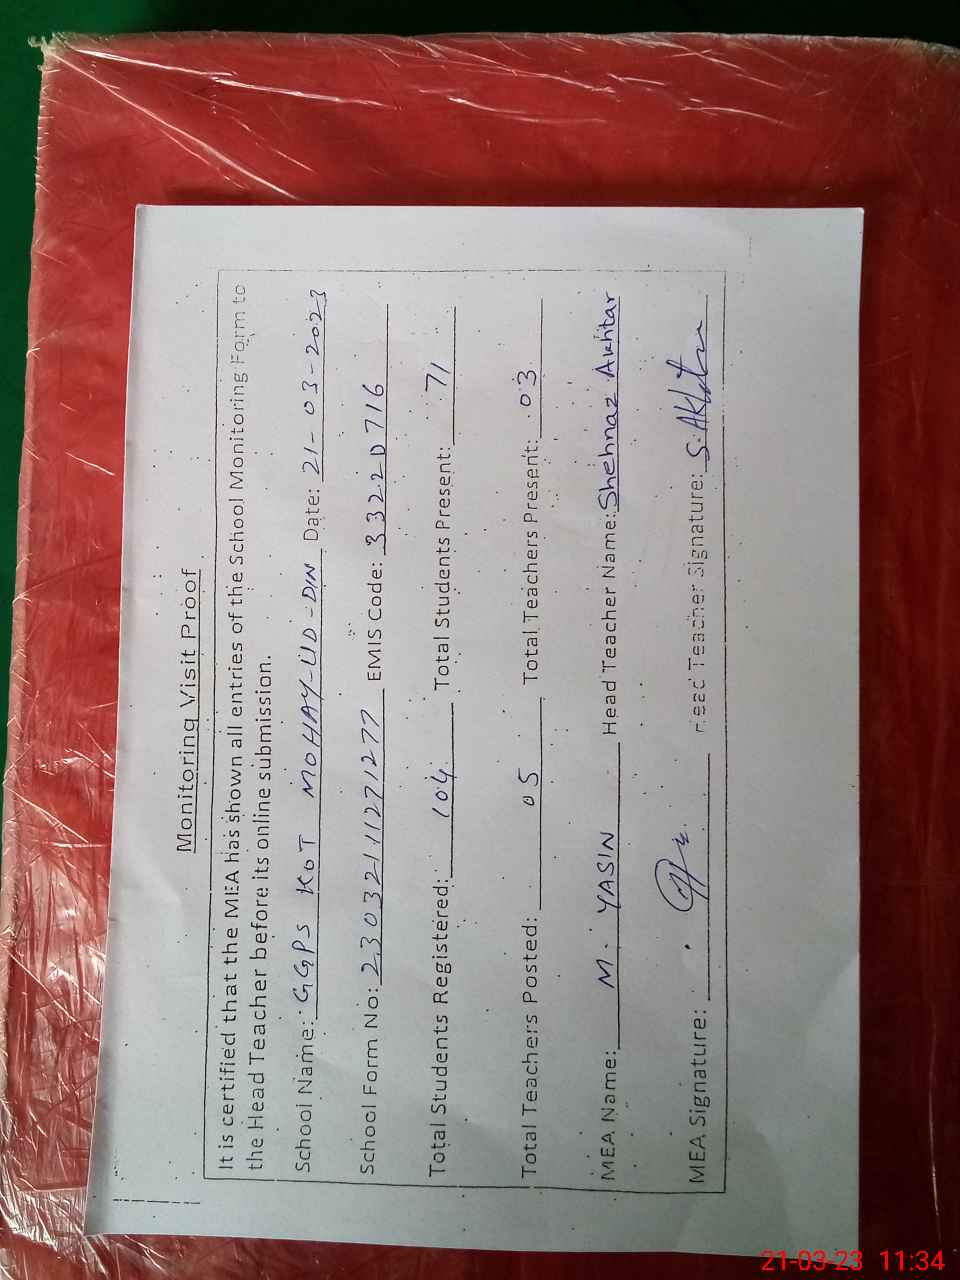 Monitoring Visit Proof
It is certified that the MEA has shown all entries of the School Monitoring Form to
the Head Teacher before its online submission.
School Name: GGPS KOT MOHAY-UD-DIN Date: 21-03-2023
School Form No: 23032111271277 EMIS Code: 3322D716
Total Students Registered: 104 Total Students Present: 71
Total Teachers Posted: 05 Total Teachers Present: 03
MEA Name: M. YASIN Head Teacher Name: Shehnaz Akhtar
MEA Signature: Head Teacher Signature: S. Akhtar
21-03-23 11:34